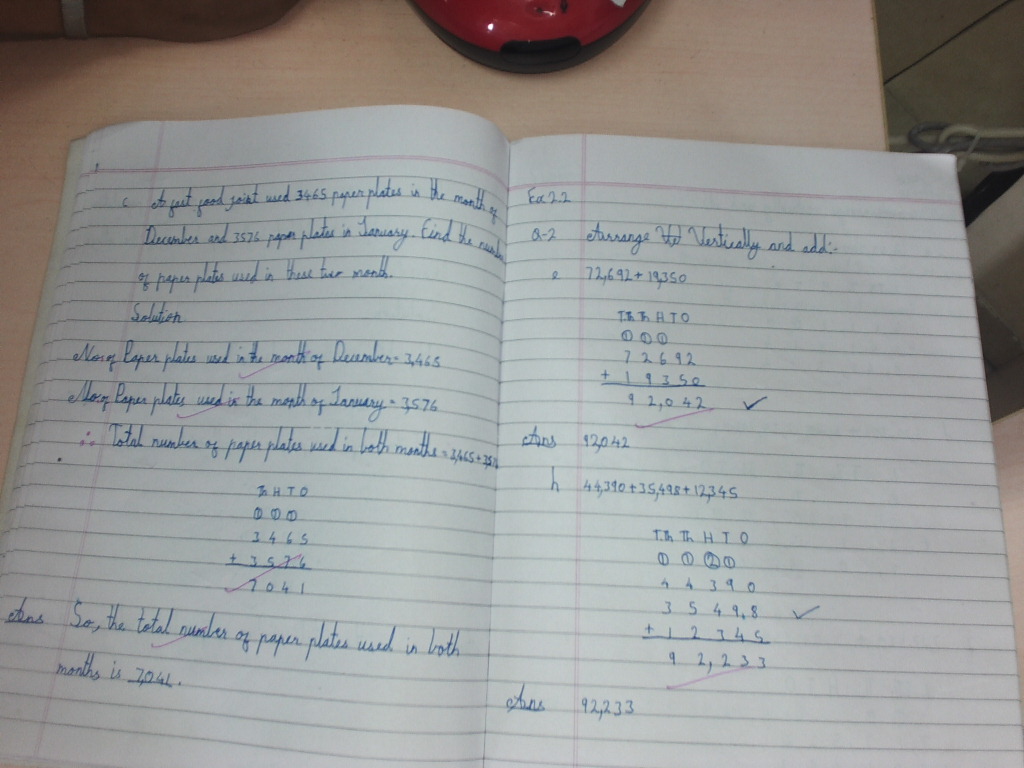 c A fast food joint used 3465 paper plates in the month of
December and 3576 paper plates in January. Find the number
of paper plates used in these two month.
Solution
No. of Paper plates used in the month of December = 3,465
No. of Paper plates used in the month of January = 3,576
∴ Total number of paper plates used in both months = 3,465 + 3,576
Th H T O
① ① ①
3 4 6 5
+ 3 5 7 6
7 0 4 1
Ans So, the total number of paper plates used in both
months is 7,041.
Ex 2.2
Q-2 Arrange Vertically and add:-
e 72,692 + 19,350
T.Th Th H T O
① ① ①
7 2 6 9 2
+ 1 9 3 5 0
9 2,0 4 2
Ans 92,042
h 44,390 + 35,498 + 12,345
T.Th Th H T O
① ① ② ①
4 4 3 9 0
3 5 4 9 8
+ 1 2 3 4 5
9 2,2 3 3
Ans 92,233